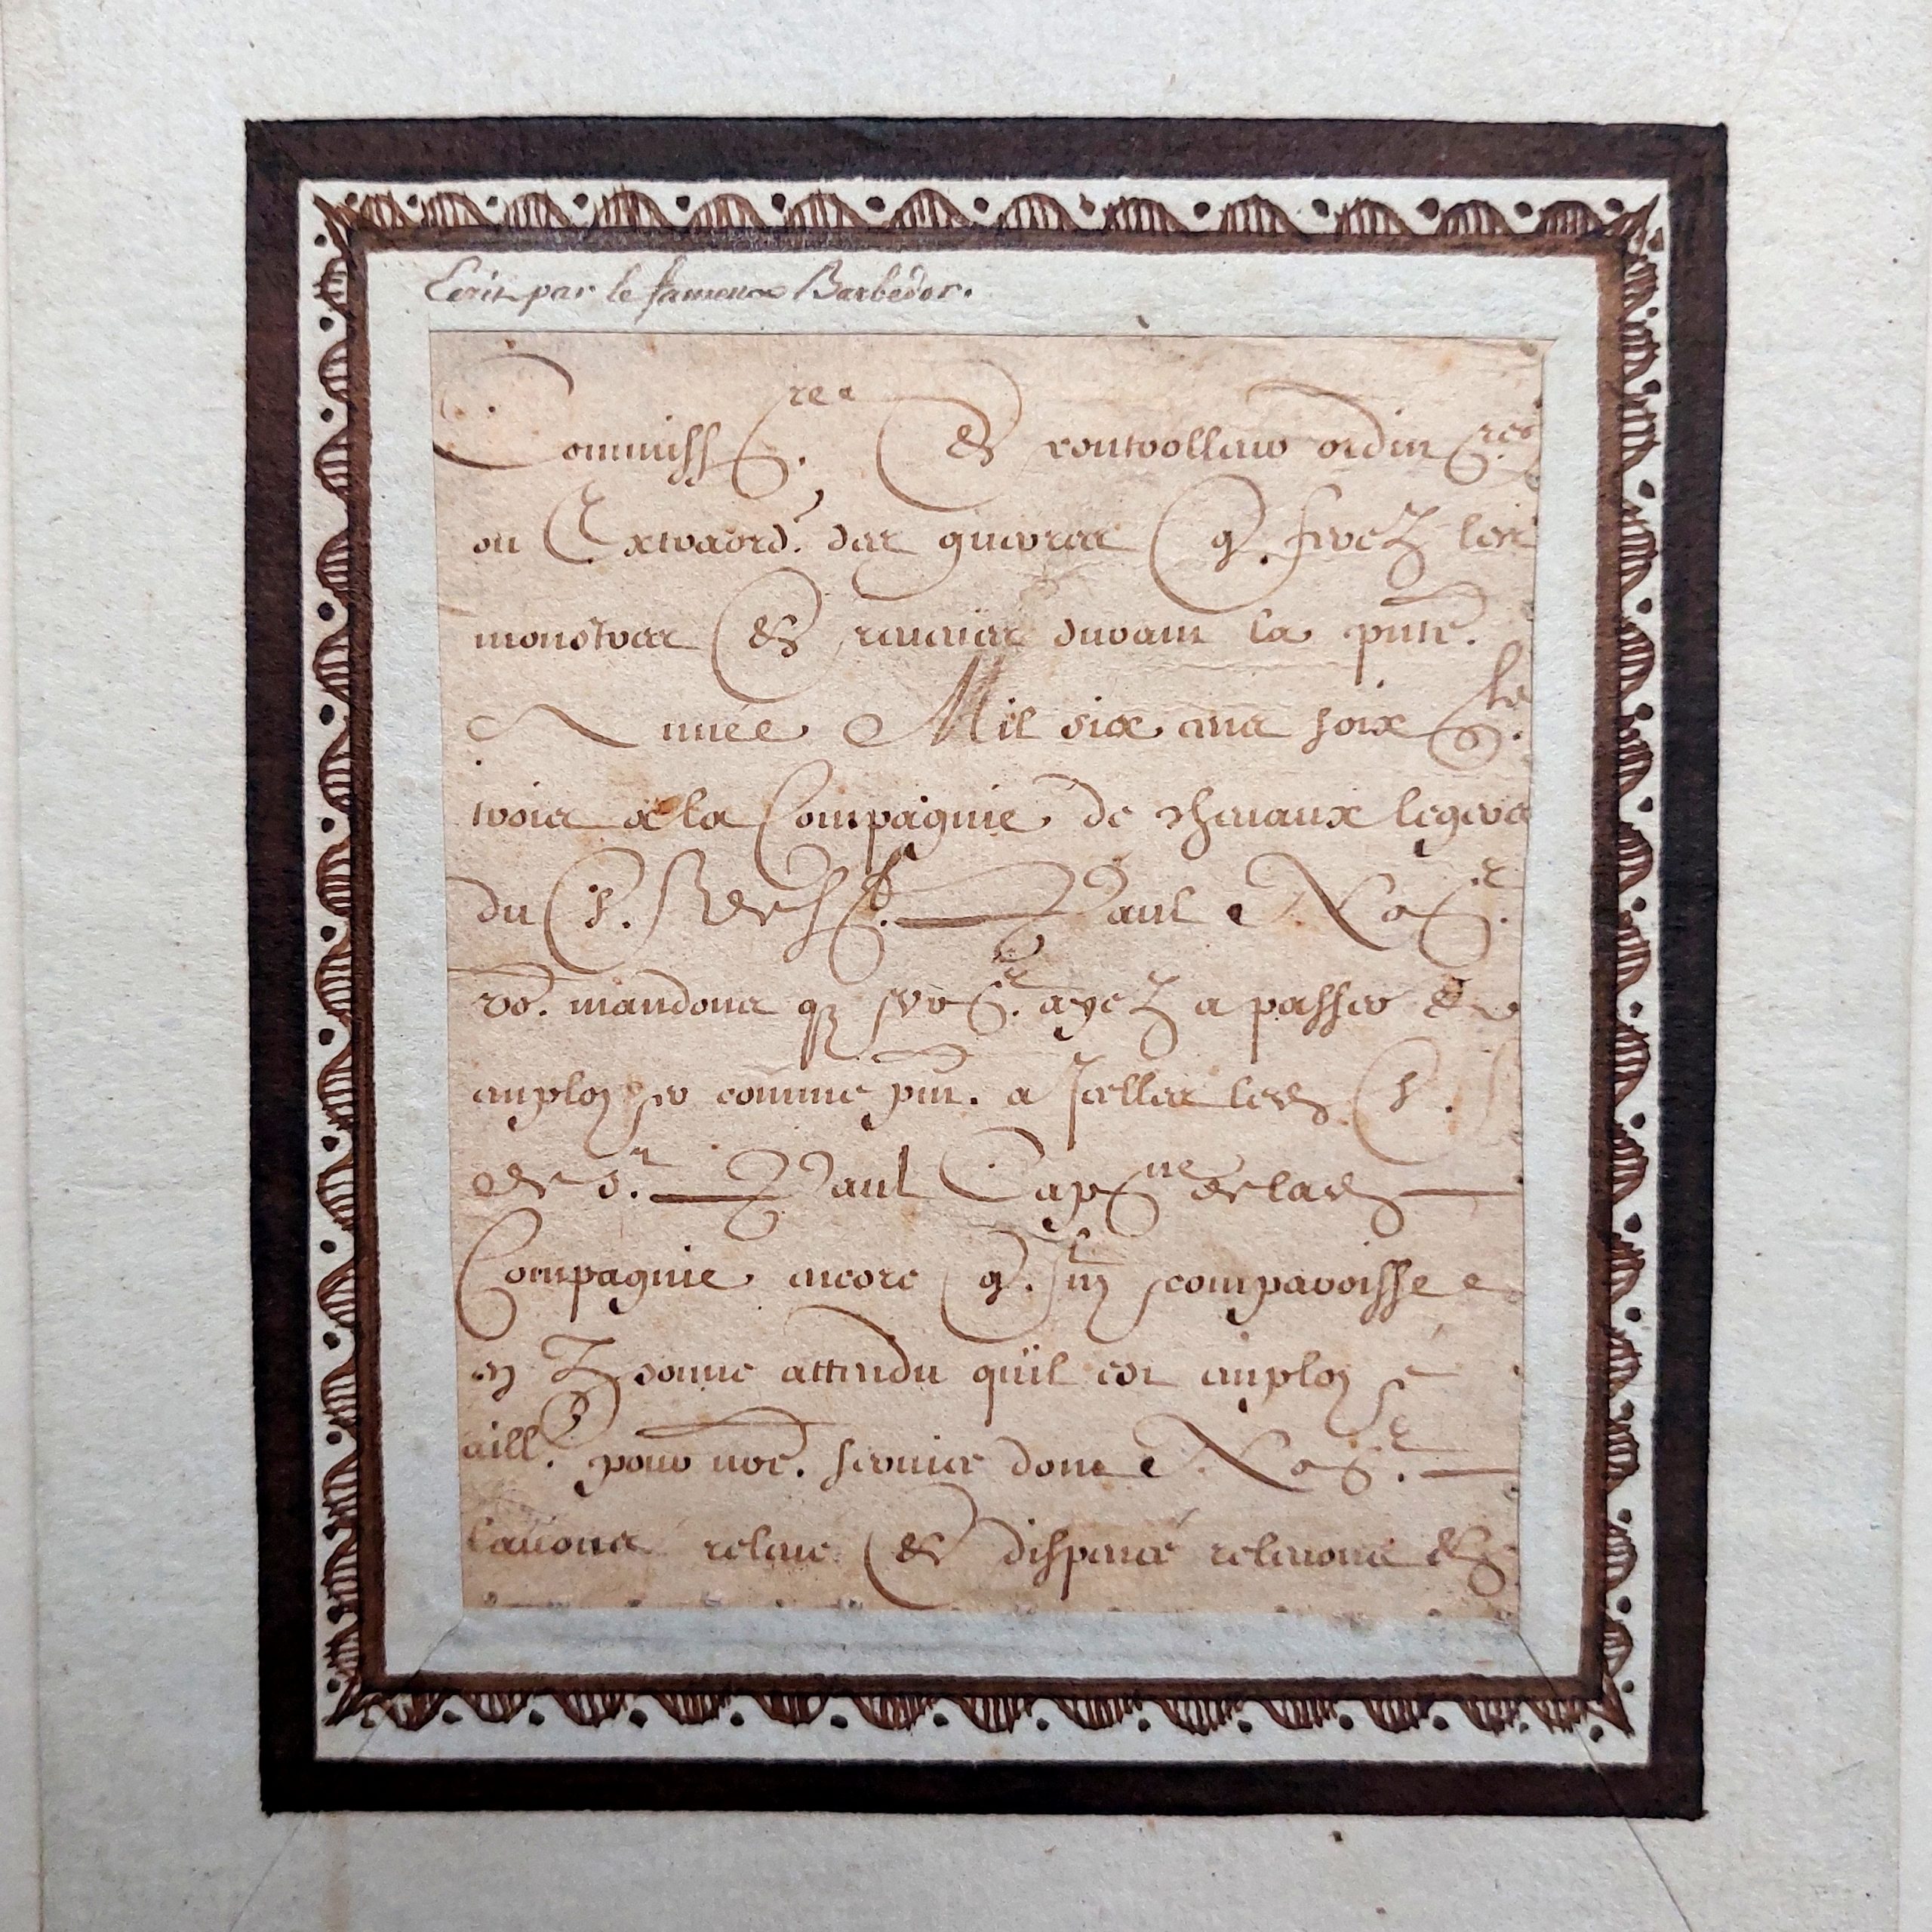 Ecrit par le fameux Barbedor.
Commiss.res & controlleurs ordin.res
ou Extraord.s des guerres q. ferez les
monstres & reveues durant la pnte.
Année Mil six cens soix.te
trois a la Compagnie de chevaux legers
du S. de Paul Nos.
vo. mandons q; ayez a passer &
employer comme pnt. a Icelles led. S.
de S.t Paul Cap.ne de lad.
Compagnie encore q. comparoisse
en Personne attendu quil est employé
aill.rs pour nre. service dont Nos.
lavons releve & dispencé relevons &